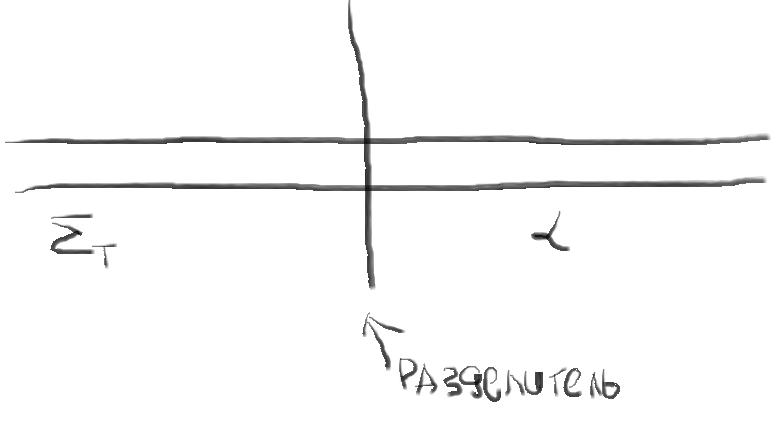 Σ_T
α
РАЗДЕЛИТЕЛЬ